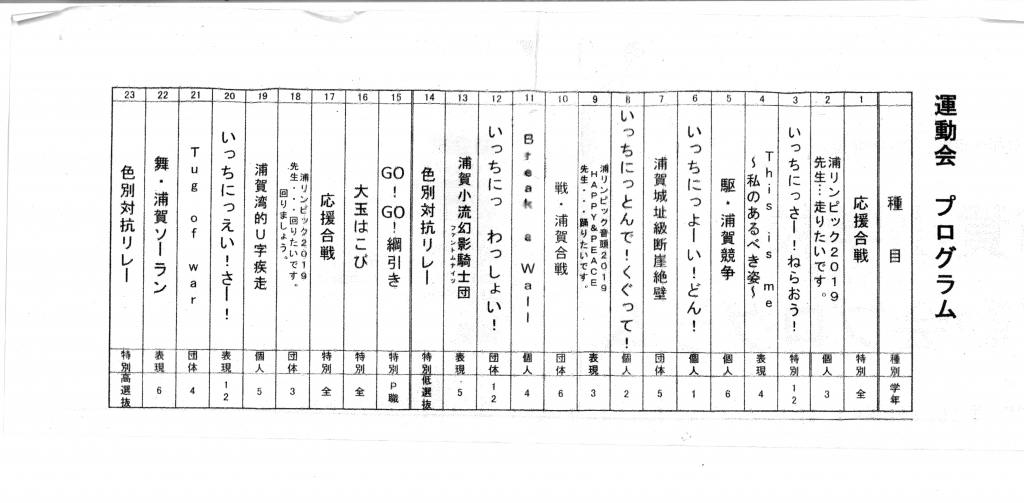 運動会 プログラム
種目 種別 学年
1 応援合戦 特別 全
2 浦リンピック2019
先生…走りたいです。 個人 3
3 いっちにっさー!ねらおう! 特別 12
4 This is me
~私のあるべき姿~ 表現 4
5 駆・浦賀競争 個人 6
6 いっちにっよーい!どん! 個人 1
7 浦賀城址級断崖絶壁 団体 5
8 いっちにっとんで!くぐって! 個人 2
9 浦リンピック音頭2019
HAPPY&PEACE
先生・・・踊りたいです。 表現 3
10 戦・浦賀合戦 団体 6
11 Break a Wall 個人 4
12 いっちにっ わっしょい! 団体 12
13 浦賀小流幻影騎士団
ファントムナイツ 表現 5
14 色別対抗リレー 特別 低選抜
15 GO!GO!綱引き 特別 P職
16 大玉はこび 特別 全
17 応援合戦 特別 全
18 浦リンピック2019
先生・・・回りたいです。
回りましょう。 団体 3
19 浦賀湾的U字疾走 個人 5
20 いっちにっえい!さー! 表現 12
21 Tug of war 団体 4
22 舞・浦賀ソーラン 表現 6
23 色別対抗リレー 特別 高選抜